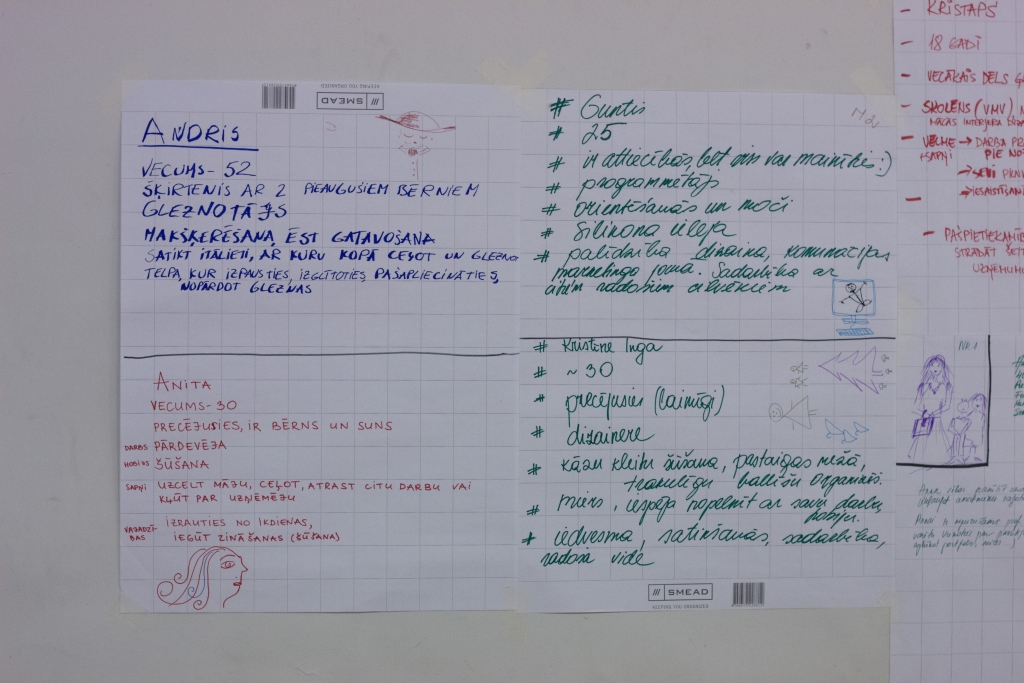 KEEPING YOU ORGANIZED
SMEAD
ANDRIS
VECUMS - 52
ŠĶIRTENIS AR 2 PIEAUGUŠIEM BĒRNIEM
GLEZNOTĀJS
MAKŠĶERĒŠANA, ĒST GATAVOŠANA
SATIKT ITĀLIETI, AR KURU KOPĀ CEĻOT UN GLEZNO
TELPA, KUR IZPAUSTIES, IZGLĪTOTIES, PAŠAPLIECINĀTIES,
NOPĀRDOT GLEZNAS
ANITA
VECUMS - 30
PRECĒJUSIES, IR BĒRNS UN SUNS
DARBS PĀRDEVĒJA
HOBIJS ŠŪŠANA
SAPŅI UZCELT MĀJU, CEĻOT, ATRAST CITU DARBU VAI
KĻŪT PAR UZŅĒMĒJU
VAJADZĪ-
BAS IZRAUTIES NO IKDIENAS,
IEGŪT ZINĀŠANAS (ŠŪŠANA)
# Guntis
# 25
# ir attiecībās, bet viss var mainīties :)
# programmētājs
# orientēšanās un moči
# Silikona ieleja
# palīdzība dizaina, komunikācijas
mārketinga jomā. Sadarbība ar
citiem radošiem cilvēkiem
# Kristīne Inga
# ~ 30
* precējusies (laimīgi)
# dizainere
* kāzu kleitu šūšana, pastaigas mežā,
trakulīgu ballīšu organizēš.
* miers, iespēja nopelnīt ar savu darbu,
hobiju.
* iedvesma, satikšanās, sadarbība,
radoša vide
SMEAD
KEEPING YOU ORGANIZED
- KRISTAPS
- 18 GADI
- VECĀKAIS DĒLS
- SKOLĒNS (VMV)
MĀCĀS INTERJERA
- VĒLME → DARBA
+SAPŅI PIE
→ SEVI
→ IESAISTĪŠAN
- PAŠPIETIEKAMĪB
STRĀDĀT
UZŅĒMUM
NR. 1